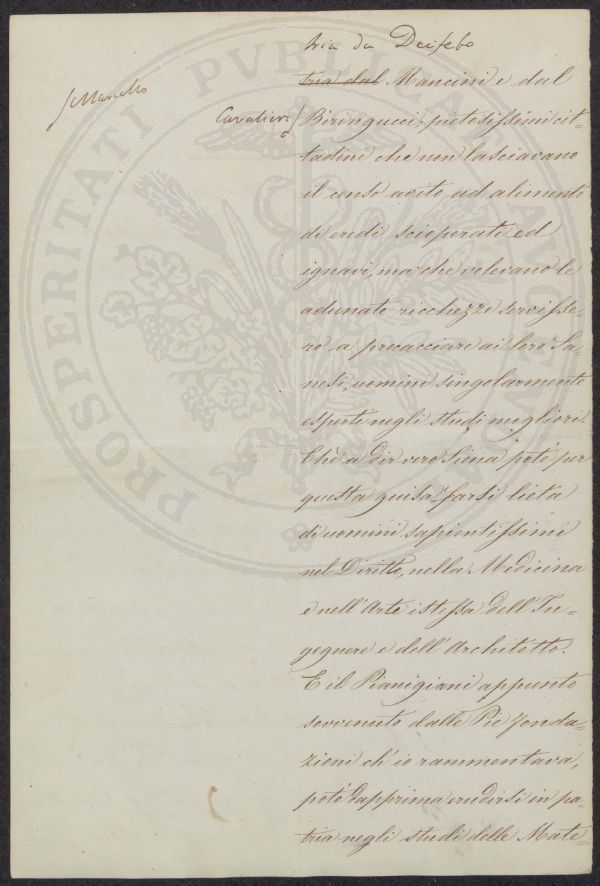 tria da Deifebo
tria dal Mancini e dal
S. Marcello
Cavalieri
Biringucci, pietosissimi cit-
tadini che non lasciavano
il censo avito ad alimento
di eredi scioperati ed
ignavi, ma che volevano le
adunate ricchezze servisse-
ro a procacciare ai loro Sa-
nesi, uomini singolarmente
esperti negli studi migliori.
Chè a dir vero Siena potè per
questa guisa farsi lieta
di uomini sapientissimi
nel Diritto, nella Medicina
e nell'Arte istessa dell'In-
gegnere e dell'Architetto.
E il Pianigiani appunto
sovvenuto dalle Pie Fonda-
zioni ch'io rammentava,
potè dapprima erudirsi in pa-
tria negli studi delle Mate-
PROSPERITATI PVBLICAE AVGENDAE